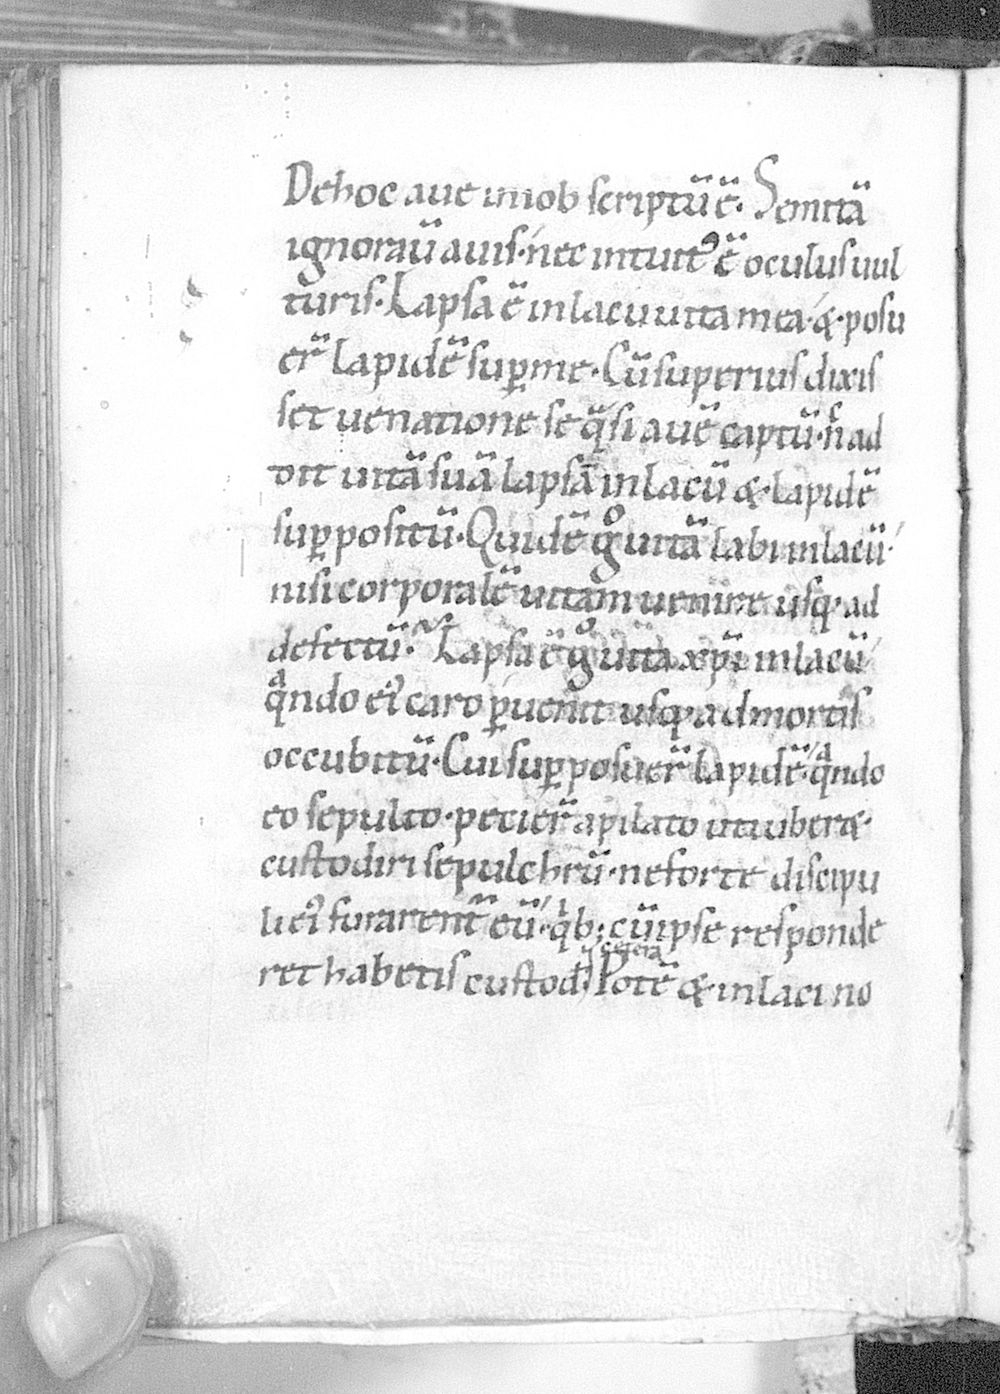 De hoc aue in iob scriptū ē. Semitā
ignorauͫ auis. nec intuitꝰ ē oculus uul
turis. Lapsa ē in lacu uita mea. & posu
er̄ lapidē sup̱ me. Cū superius dixis
set uenatione se qͣsi auē captū. n̄c ad
dit uitā suā lapsā in lacū & lapidē
sup̱positū. Quid ē gͦ uitā labi in lacū.
nisi corporalē uitam uenire usq; ad
defectū. Lapsa ē gͦ uita xp̄i in lacū
qͣndo eiꝰ caro p̱uenit usq; ad mortis
occubitū. Cui sup̱posuer̄ lapidē. qͣndo
eo sepulto. petier̄ a pilato ut iuber&
custodiri sepulchrū. ne forte discipu
li eiꝰ furarent̄ eū. qͥb; cū ipse responde
ret habetis custod̄. & cetera Potē & in laci no